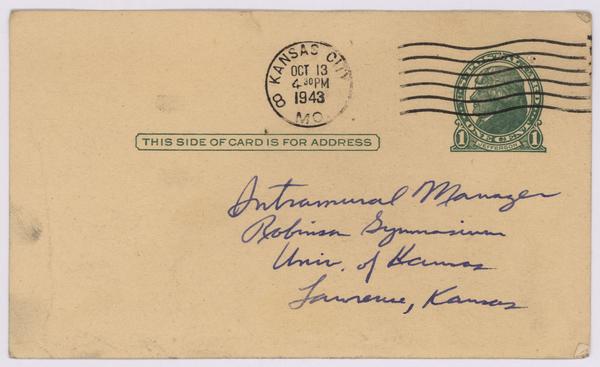 8 KANSAS CITY
OCT 13
4 30 PM
1943
MO.
THIS SIDE OF CARD IS FOR ADDRESS
1 ONE CENT 1
JEFFERSON
Intramural Manager
Robinson Gymnasium
Univ. of Kansas
Lawrence, Kansas